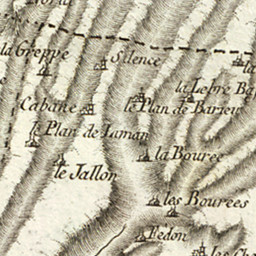 la Greppe
Silence
la
la Lebre Ba
Cabane
le Plan de Barieu
le Plan de Laman
la Bouree
le Jallon
les Bourees
Fedon
les Ch